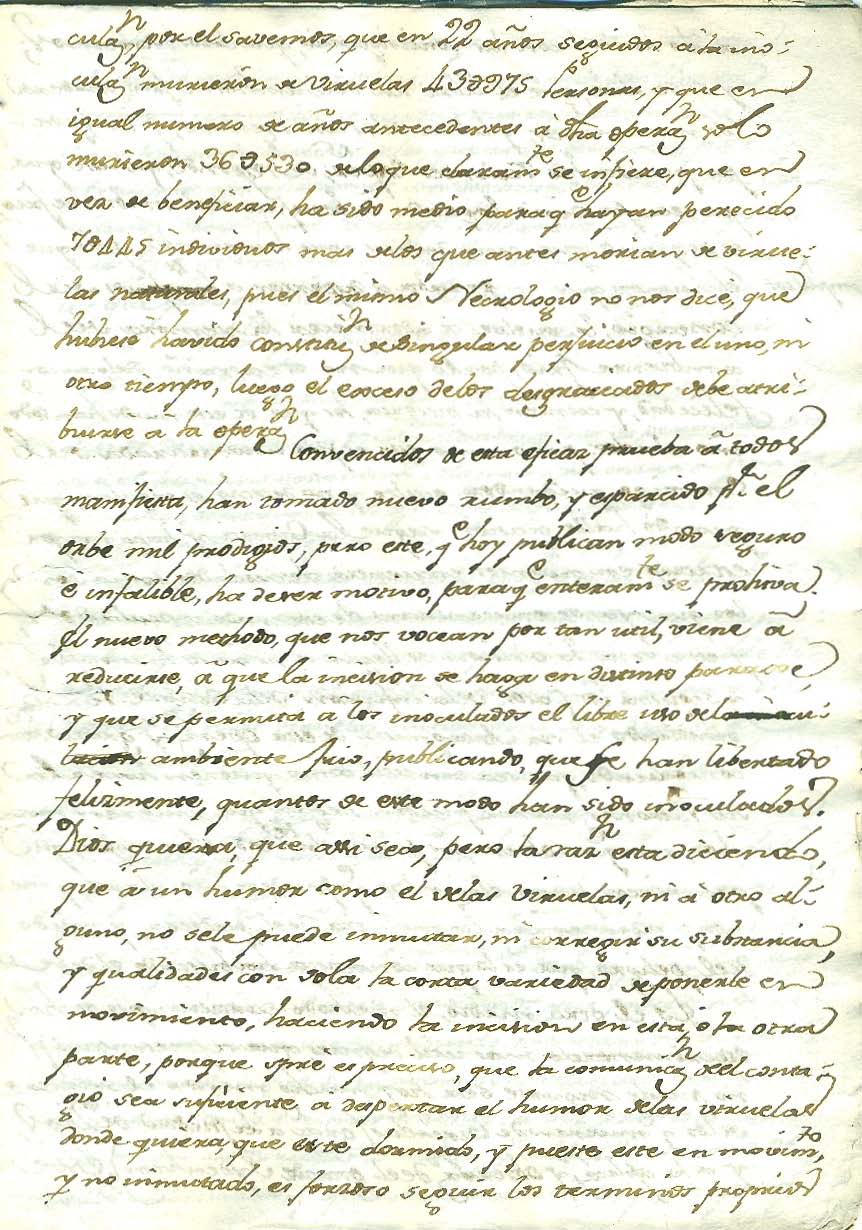 culan, por el savemos, que en 22 años seguidos à la ino-
culan murieron de Viruelas 43@975 Personas, y que en
igual numero de años antecedentes à dha operan solo
murieron 36@530 de lo que claramte se infiere, que en
vez de beneficiar, ha sido medio para q hayan perecido
7@445 individuos mas delos que antes morian de virue-
las naturales, pues el mismo Necrologio no nos dice, que
hubiese havido constitun de singular perjuicio en el uno, ni
otro tiempo, luego el exceso delos desgraciados debe atri-
buirse à la operan Convencidos de esta eficaz prueba à todos
manifiesta, han tomado nuevo rumbo, y esparcido pr el
orbe mil prodigios, pero este, q hoy publican modo seguro
è infalible, ha de ser motivo, para q enteramte se prohiva.
El nuevo methodo, que nos vocean por tan util, viene à
reducirse, à que la incision se haga en distinto parage,
y que se permita à los inoculados el libre uso del
ambiente frio, publicando, que se han libertado
felizmente, quantos de este modo han sido inoculados.
Dios quiera, que assi sea, pero la razn esta diciendo,
que à un humor como el delas Viruelas, ni à otro al-
guno, no sele puede inmutar, ni corregir su substancia,
y qualidades con sola la corta variedad de ponerle en
movimiento, haciendo la incision en esta, ò la otra
parte, porque spre es preciso, que la comunican del conta-
gio sea suficiente à despertar el humor delas viruelas
donde quiera, que este dormido, y puesto este en movimto,
y no inmutado, es forzoso seguir los terminos proprios